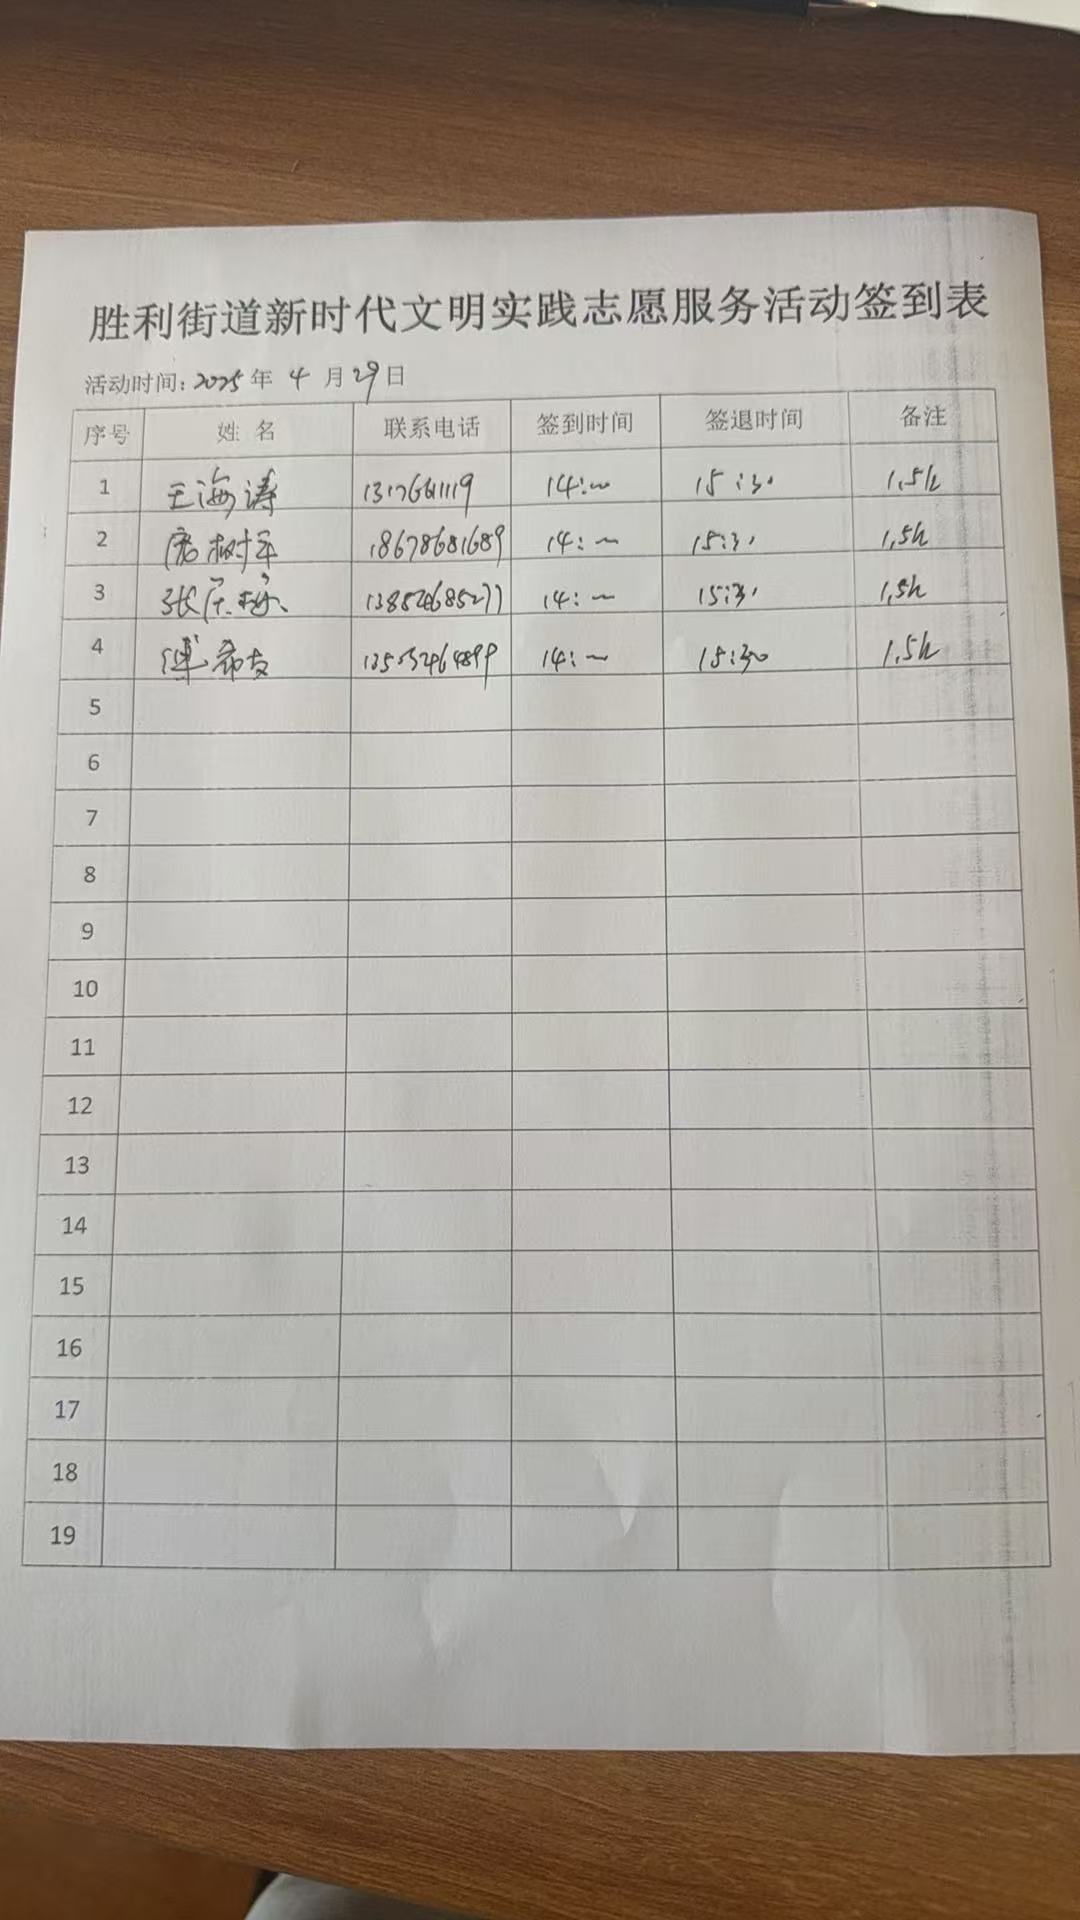 胜利街道新时代文明实践志愿服务活动签到表
活动时间: 2025 年 4 月 29 日
序号 姓 名 联系电话 签到时间 签退时间 备注
1 王海涛 14:00 15:30 1.5h
2 树平 18678681689 14:00 15:30 1.5h
3 张 14:00 15:30 1.5h
4 傅希友 14:00 15:30 1.5h
5
6
7
8
9
10
11
12
13
14
15
16
17
18
19